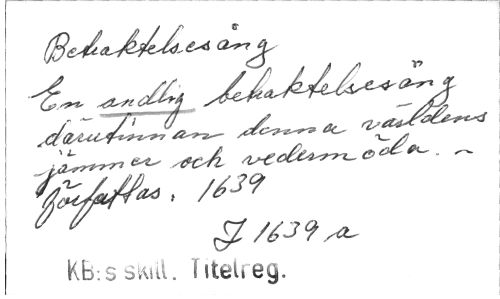 Betraktelsesång
En andlig betraktelsesång
därutinnan denna världens
jämmer och vedermöda. ~
författas. 1639
J 1639 a
KB:s skill. Titelreg.